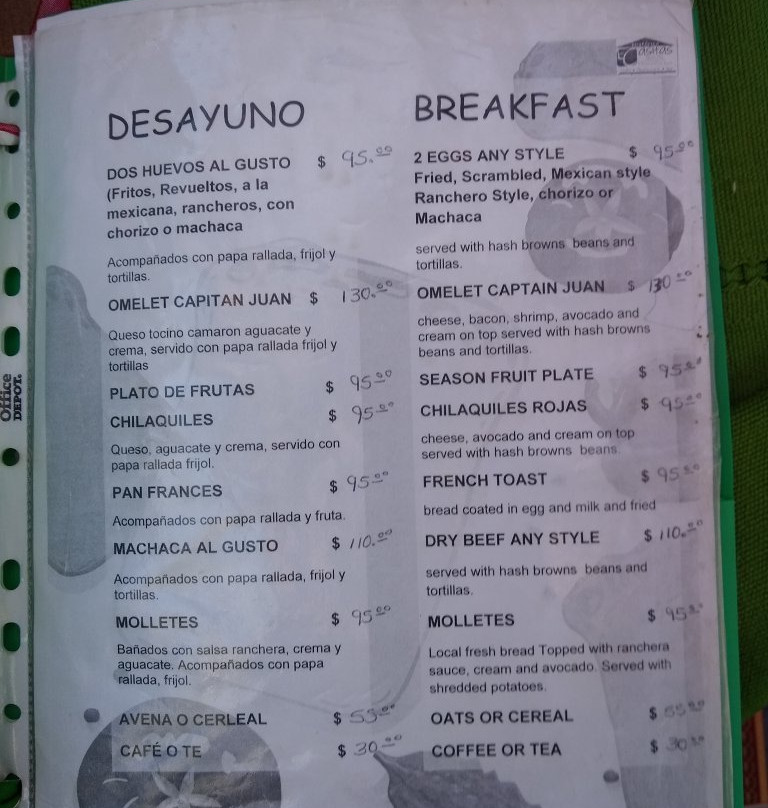 Casitas
DESAYUNO
DOS HUEVOS AL GUSTO $ 95.00
(Fritos, Revueltos, a la
mexicana, rancheros, con
chorizo o machaca
Acompañados con papa rallada, frijol y
tortillas.
OMELET CAPITAN JUAN $ 130.00
Queso tocino camaron aguacate y
crema, servido con papa rallada frijol y
tortillas
PLATO DE FRUTAS $ 95.00
CHILAQUILES $ 95.00
Queso, aguacate y crema, servido con
papa rallada frijol.
PAN FRANCES $ 95.00
Acompañados con papa rallada y fruta.
MACHACA AL GUSTO $ 110.00
Acompañados con papa rallada, frijol y
tortillas.
MOLLETES $ 95.00
Bañados con salsa ranchera, crema y
aguacate. Acompañados con papa
rallada, frijol.
AVENA O CERLEAL $ 55.00
CAFÉ O TE $ 30.00
BREAKFAST
2 EGGS ANY STYLE $ 95.00
Fried, Scrambled, Mexican style
Ranchero Style, chorizo or
Machaca
served with hash browns beans and
tortillas.
OMELET CAPTAIN JUAN $ 130.00
cheese, bacon, shrimp, avocado and
cream on top served with hash browns
beans and tortillas.
SEASON FRUIT PLATE $ 95.00
CHILAQUILES ROJAS $ 95.00
cheese, avocado and cream on top
served with hash browns beans
FRENCH TOAST $ 95.00
bread coated in egg and milk and fried
DRY BEEF ANY STYLE $ 110.00
served with hash browns beans and
tortillas.
MOLLETES $ 95.00
Local fresh bread Topped with ranchera
sauce, cream and avocado. Served with
shredded potatoes.
OATS OR CEREAL $ 55.00
COFFEE OR TEA $ 30.00
Office
DEPOT.